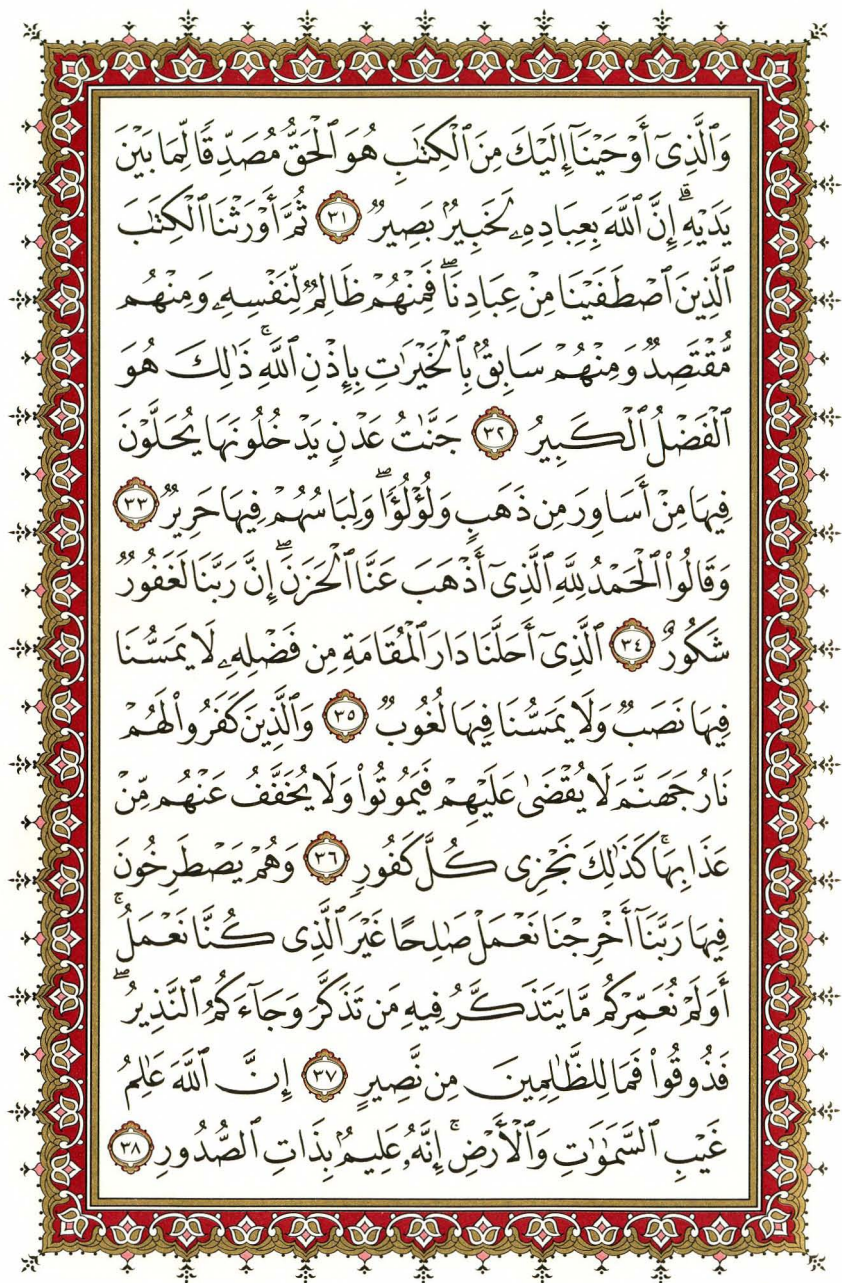 وَٱلَّذِىٓ أَوْحَيْنَآ إِلَيْكَ مِنَ ٱلْكِتَٰبِ هُوَ ٱلْحَقُّ مُصَدِّقًا لِّمَا بَيْنَ
يَدَيْهِۗ إِنَّ ٱللَّهَ بِعِبَادِهِۦ لَخَبِيرٌۢ بَصِيرٌ ٣١ ثُمَّ أَوْرَثْنَا ٱلْكِتَٰبَ
ٱلَّذِينَ ٱصْطَفَيْنَا مِنْ عِبَادِنَاۖ فَمِنْهُمْ ظَالِمٌ لِّنَفْسِهِۦ وَمِنْهُم
مُّقْتَصِدٌ وَمِنْهُمْ سَابِقٌۢ بِٱلْخَيْرَٰتِ بِإِذْنِ ٱللَّهِۚ ذَٰلِكَ هُوَ
ٱلْفَضْلُ ٱلْكَبِيرُ ٣٢ جَنَّٰتُ عَدْنٍ يَدْخُلُونَهَا يُحَلَّوْنَ
فِيهَا مِنْ أَسَاوِرَ مِن ذَهَبٍ وَلُؤْلُؤًاۖ وَلِبَاسُهُمْ فِيهَا حَرِيرٌ ٣٣
وَقَالُوا۟ ٱلْحَمْدُ لِلَّهِ ٱلَّذِىٓ أَذْهَبَ عَنَّا ٱلْحَزَنَۖ إِنَّ رَبَّنَا لَغَفُورٌ
شَكُورٌ ٣٤ ٱلَّذِىٓ أَحَلَّنَا دَارَ ٱلْمُقَامَةِ مِن فَضْلِهِۦ لَا يَمَسُّنَا
فِيهَا نَصَبٌ وَلَا يَمَسُّنَا فِيهَا لُغُوبٌ ٣٥ وَٱلَّذِينَ كَفَرُوا۟ لَهُمْ
نَارُ جَهَنَّمَ لَا يُقْضَىٰ عَلَيْهِمْ فَيَمُوتُوا۟ وَلَا يُخَفَّفُ عَنْهُم مِّنْ
عَذَابِهَاۚ كَذَٰلِكَ نَجْزِى كُلَّ كَفُورٍ ٣٦ وَهُمْ يَصْطَرِخُونَ
فِيهَا رَبَّنَآ أَخْرِجْنَا نَعْمَلْ صَٰلِحًا غَيْرَ ٱلَّذِى كُنَّا نَعْمَلُۚ
أَوَلَمْ نُعَمِّرْكُم مَّا يَتَذَكَّرُ فِيهِ مَن تَذَكَّرَ وَجَآءَكُمُ ٱلنَّذِيرُۖ
فَذُوقُوا۟ فَمَا لِلظَّٰلِمِينَ مِن نَّصِيرٍ ٣٧ إِنَّ ٱللَّهَ عَٰلِمُ
غَيْبِ ٱلسَّمَٰوَٰتِ وَٱلْأَرْضِۚ إِنَّهُۥ عَلِيمٌۢ بِذَاتِ ٱلصُّدُورِ ٣٨